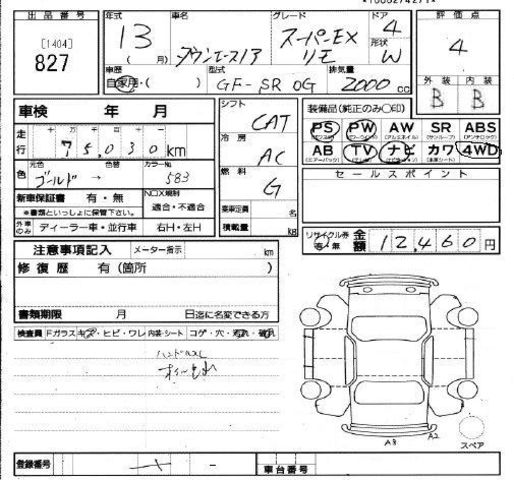 出品番号
[1404]
827
年式
13
(月)
車名
タウンエース13
グレード
スーパーEX
リモ
ドア
4
形状
W
車歴
自家用・( )
型式
GF-SR 0G
排気量
2000 cc
評価点
4
外装 内装
B B
車検 年 月
走行
十 万 千 百 十 一
75,030 km
シフト
CAT
冷房
AC
燃料
G
乗車定員 名
積載量 kg
元色 色替 カラーNo.
色 ゴールド → 583
新車保証書 有・無
※書類といっしょに保管下さい。
NOX規制
適合・不適合
外車のみ ディーラー車・並行車 右H・左H
装備品(純正のみ〇印)
PS PW AW SR ABS
AB TV ナビ カワ 4WD
セールスポイント
リサイクル券
有・無
金額 12,460 円
注意事項記入 メーター指示 km
修復歴 有(箇所 )
書類期限 月 日迄に名変できる方
検査員 Fガラス キズ・ヒビ・ワレ 内装・シート コゲ・穴・汚れ・破れ
ハンドルスレ
A3 A2
スペア
登録番号
車台番号